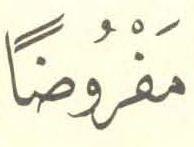 مَفْرُوضًا